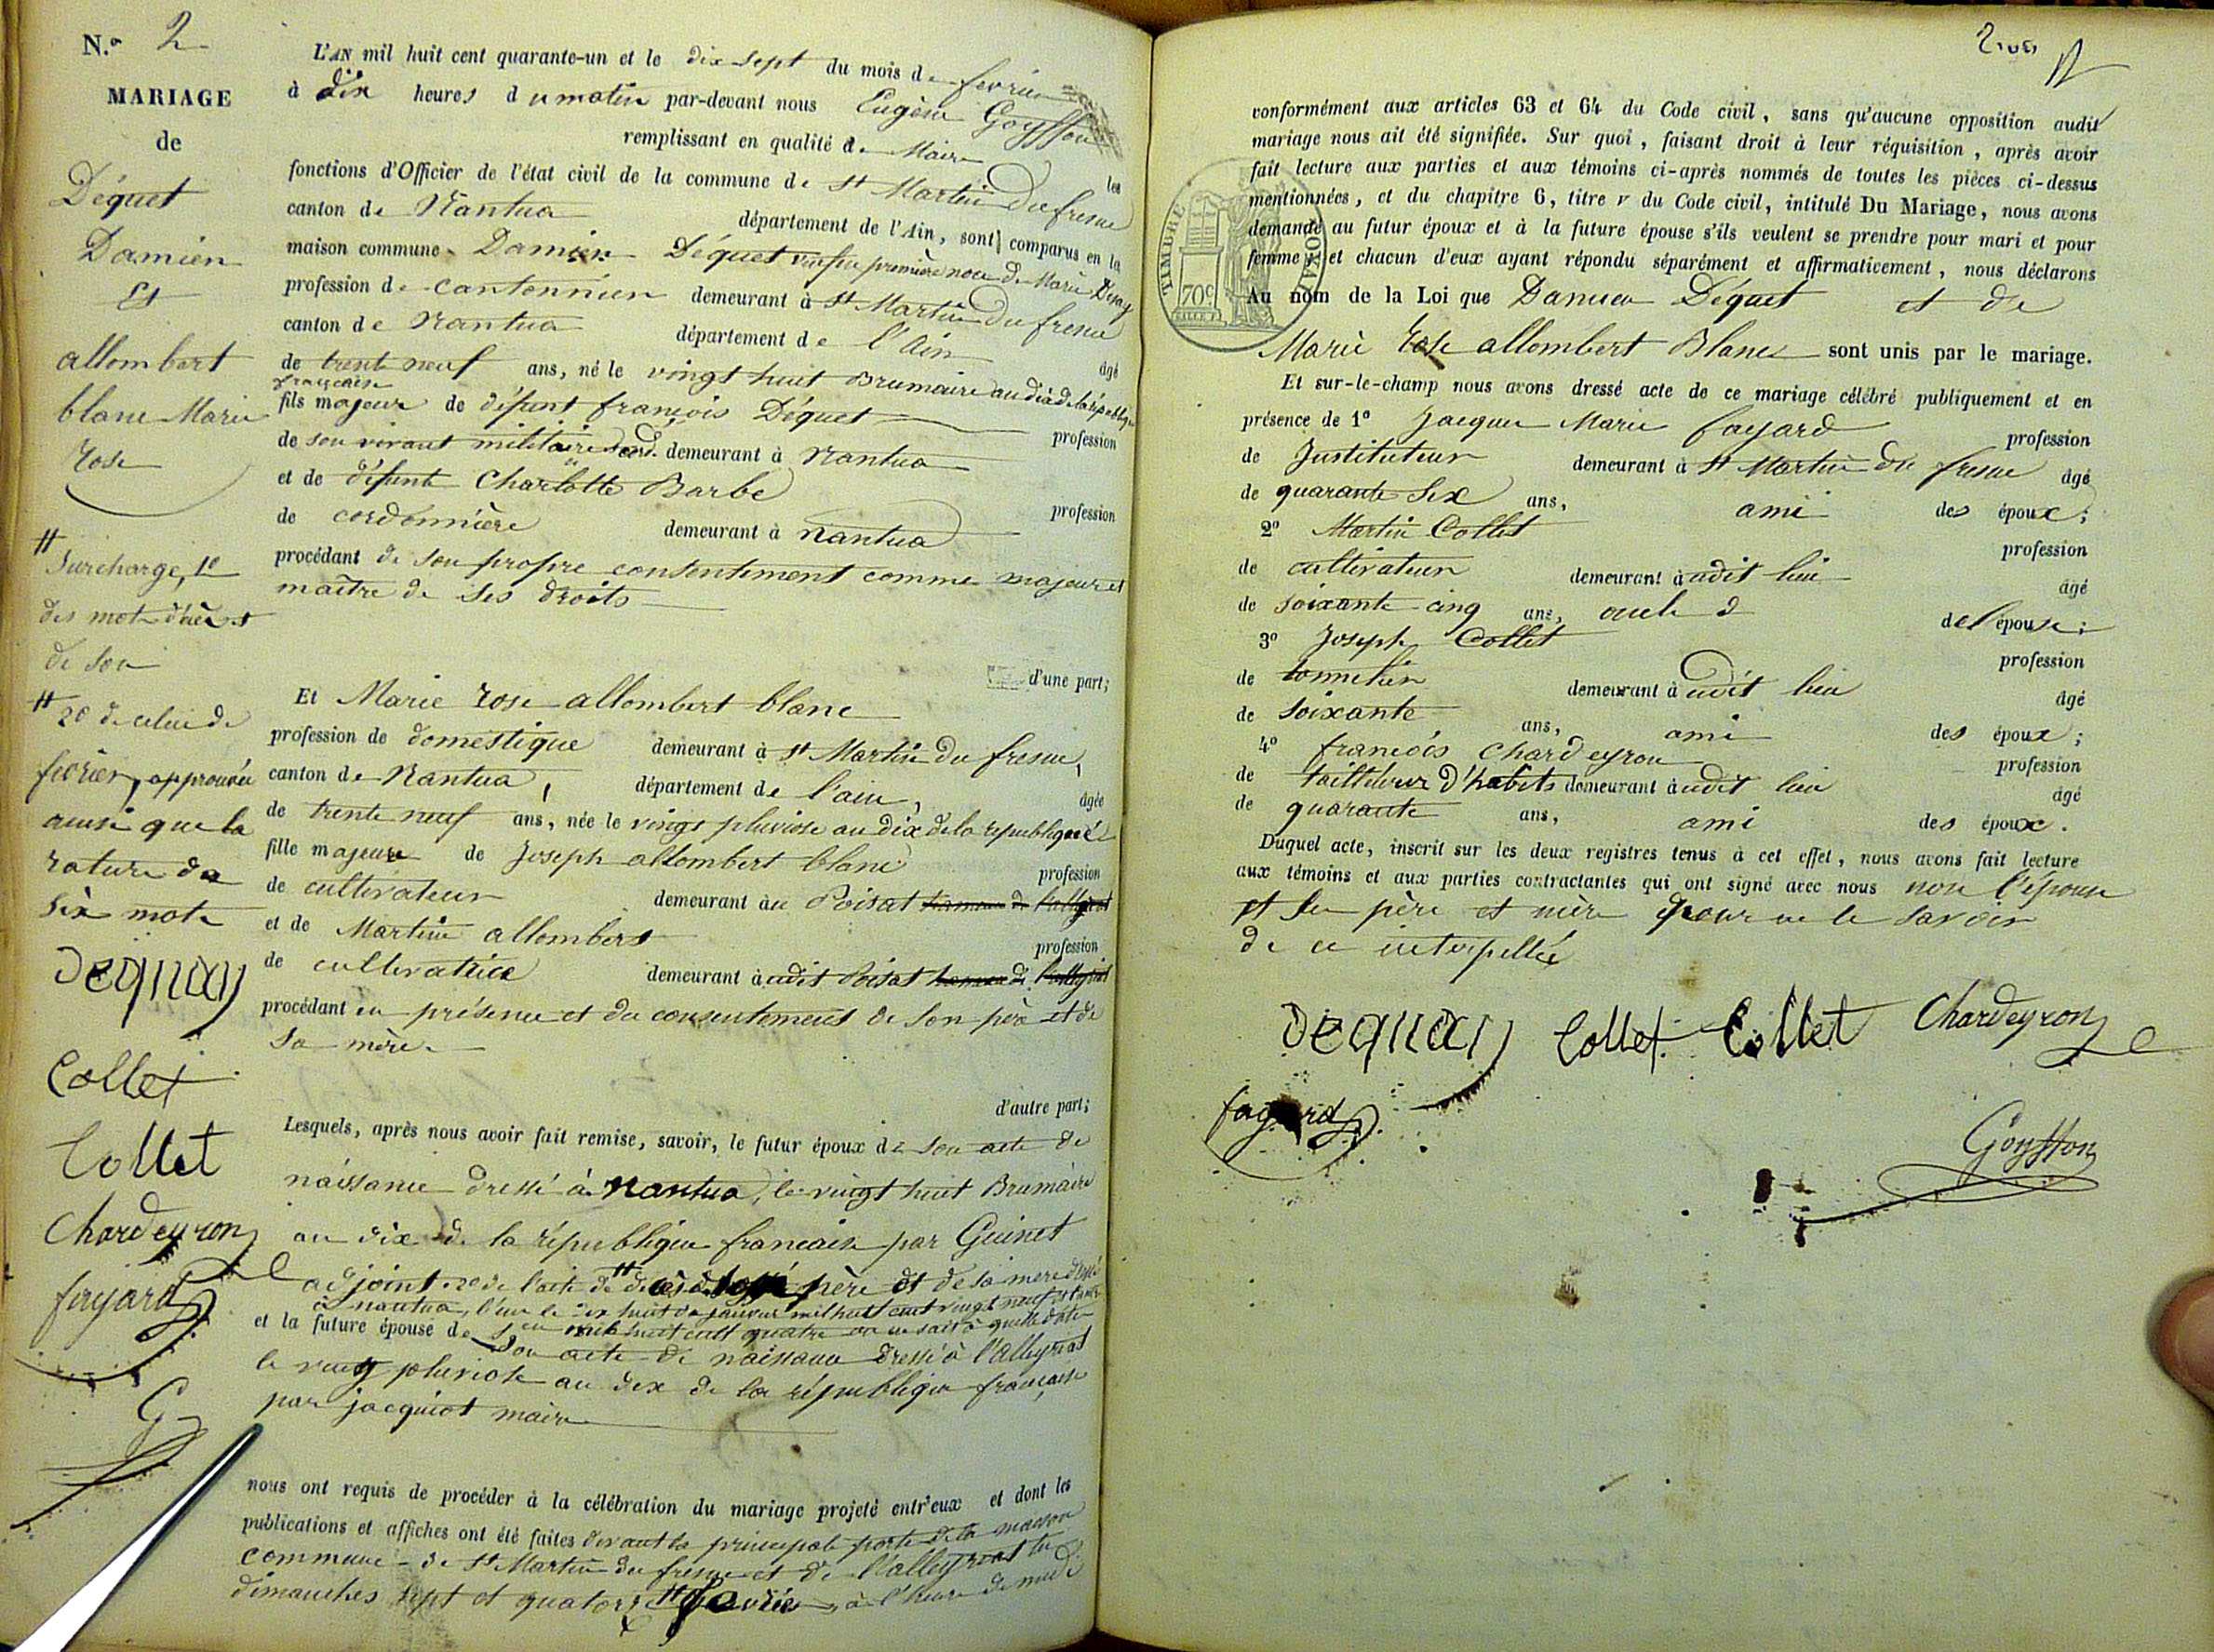 N.o 2
MARIAGE
de
Déquet
Damien
Et
allombert
blanc Marie
rose
# Surcharge, 1o
des mots décès et
de son
# 2o de celui de
février, approuvée
ainsi que la
rature de
six mots
Dequay
Collet
Collet
Chardeyron
fayard
G
L'AN mil huit cent quarante-un et le dix sept du mois de février
à dix heures du matin par-devant nous Eugène Goyffon
remplissant en qualité de Maire les
fonctions d'Officier de l'état civil de la commune de St Martin Du fresne
canton de Nantua département de l'Ain, sont comparus en la
maison commune Damien Déquet première de Marie
profession de cantonnier demeurant à St Martin Du fresne
canton de Nantua département de l'Ain âgé
de trente neuf ans, né le vingt huit Brumaire an dix de la république
française
fils majeur de défunt françois Déquet profession
de son vivant militaire demeurant à Nantua
et de défunte Charlotte Barbe profession
de cordonnière demeurant à Nantua
procédant de son propre consentement comme majeur et
maître de ses droits
d'une part;
Et Marie rose allombert blanc
profession de domestique demeurant à St Martin Du fresne,
canton de Nantua, département de l'ain, âgée
de trente neuf ans, née le vingt pluviose an dix de la république
fille majeure de Joseph allombert blanc profession
de cultivateur demeurant au Poisat hameau de l'alleyriat
et de Martine allombert profession
de cultivatrice demeurant audit Poisat hameau de l'alleyriat
procédant en présence et du consentement de son père et de
sa mère
d'autre part;
Lesquels, après nous avoir fait remise, savoir, le futur époux de son acte de
naissance dressé à Nantua, le vingt huit Brumaire
an dix de la république française par Guinet
adjoint 2o de l'acte de # décès de son père et de sa mère dressé
à nantua, l'un le dix huit de janvier mil huit cent vingt neuf et l'autre
en mil huit cent quatre on ne sait à quelle date
et la future épouse de son acte de naissance dressé à l'alleyriat
le vingt pluviose an dix de la république française
par jacquiot maire
nous ont requis de procéder à la célébration du mariage projeté entr'eux et dont les
publications et affiches ont été faites devant la principale porte de la maison
commune de St Martin du fresne et de l'alleyriat les
dimanches sept et quatorze # février, à l'heure de midi
conformément aux articles 63 et 64 du Code civil, sans qu'aucune opposition audit
mariage nous ait été signifiée. Sur quoi, faisant droit à leur réquisition, après avoir
fait lecture aux parties et aux témoins ci-après nommés de toutes les pièces ci-dessus
mentionnées, et du chapitre 6, titre v du Code civil, intitulé Du Mariage, nous avons
demandé au futur époux et à la future épouse s'ils veulent se prendre pour mari et pour
femme; et chacun d'eux ayant répondu séparément et affirmativement, nous déclarons
Au nom de la Loi que Damien Déquet et de
Marie Rose allombert Blanc sont unis par le mariage.
Et sur-le-champ nous avons dressé acte de ce mariage célébré publiquement et en
présence de 1o Jacques Marie fayard profession
de Instituteur demeurant à St Martin du fresne âgé
de quarante six ans, ami des époux;
2o Martin Collet profession
de cultivateur demeurant audit lieu âgé
de soixante cinq ans, oncle de l'épouse;
3o Joseph Collet profession
de tonnelier demeurant audit lieu âgé
de soixante ans, ami des époux;
4o francois Chardeyron profession
de tailleur d'habits demeurant audit lieu âgé
de quarante ans, ami des époux.
Duquel acte, inscrit sur les deux registres tenus à cet effet, nous avons fait lecture
aux témoins et aux parties contractantes qui ont signé avec nous non l'épouse
et ses père et mère pour ne le savoir
de ce interpellés
Dequay Collet Collet Chardeyron
fayard
Goyffon
TIMBRE ROYAL
70c